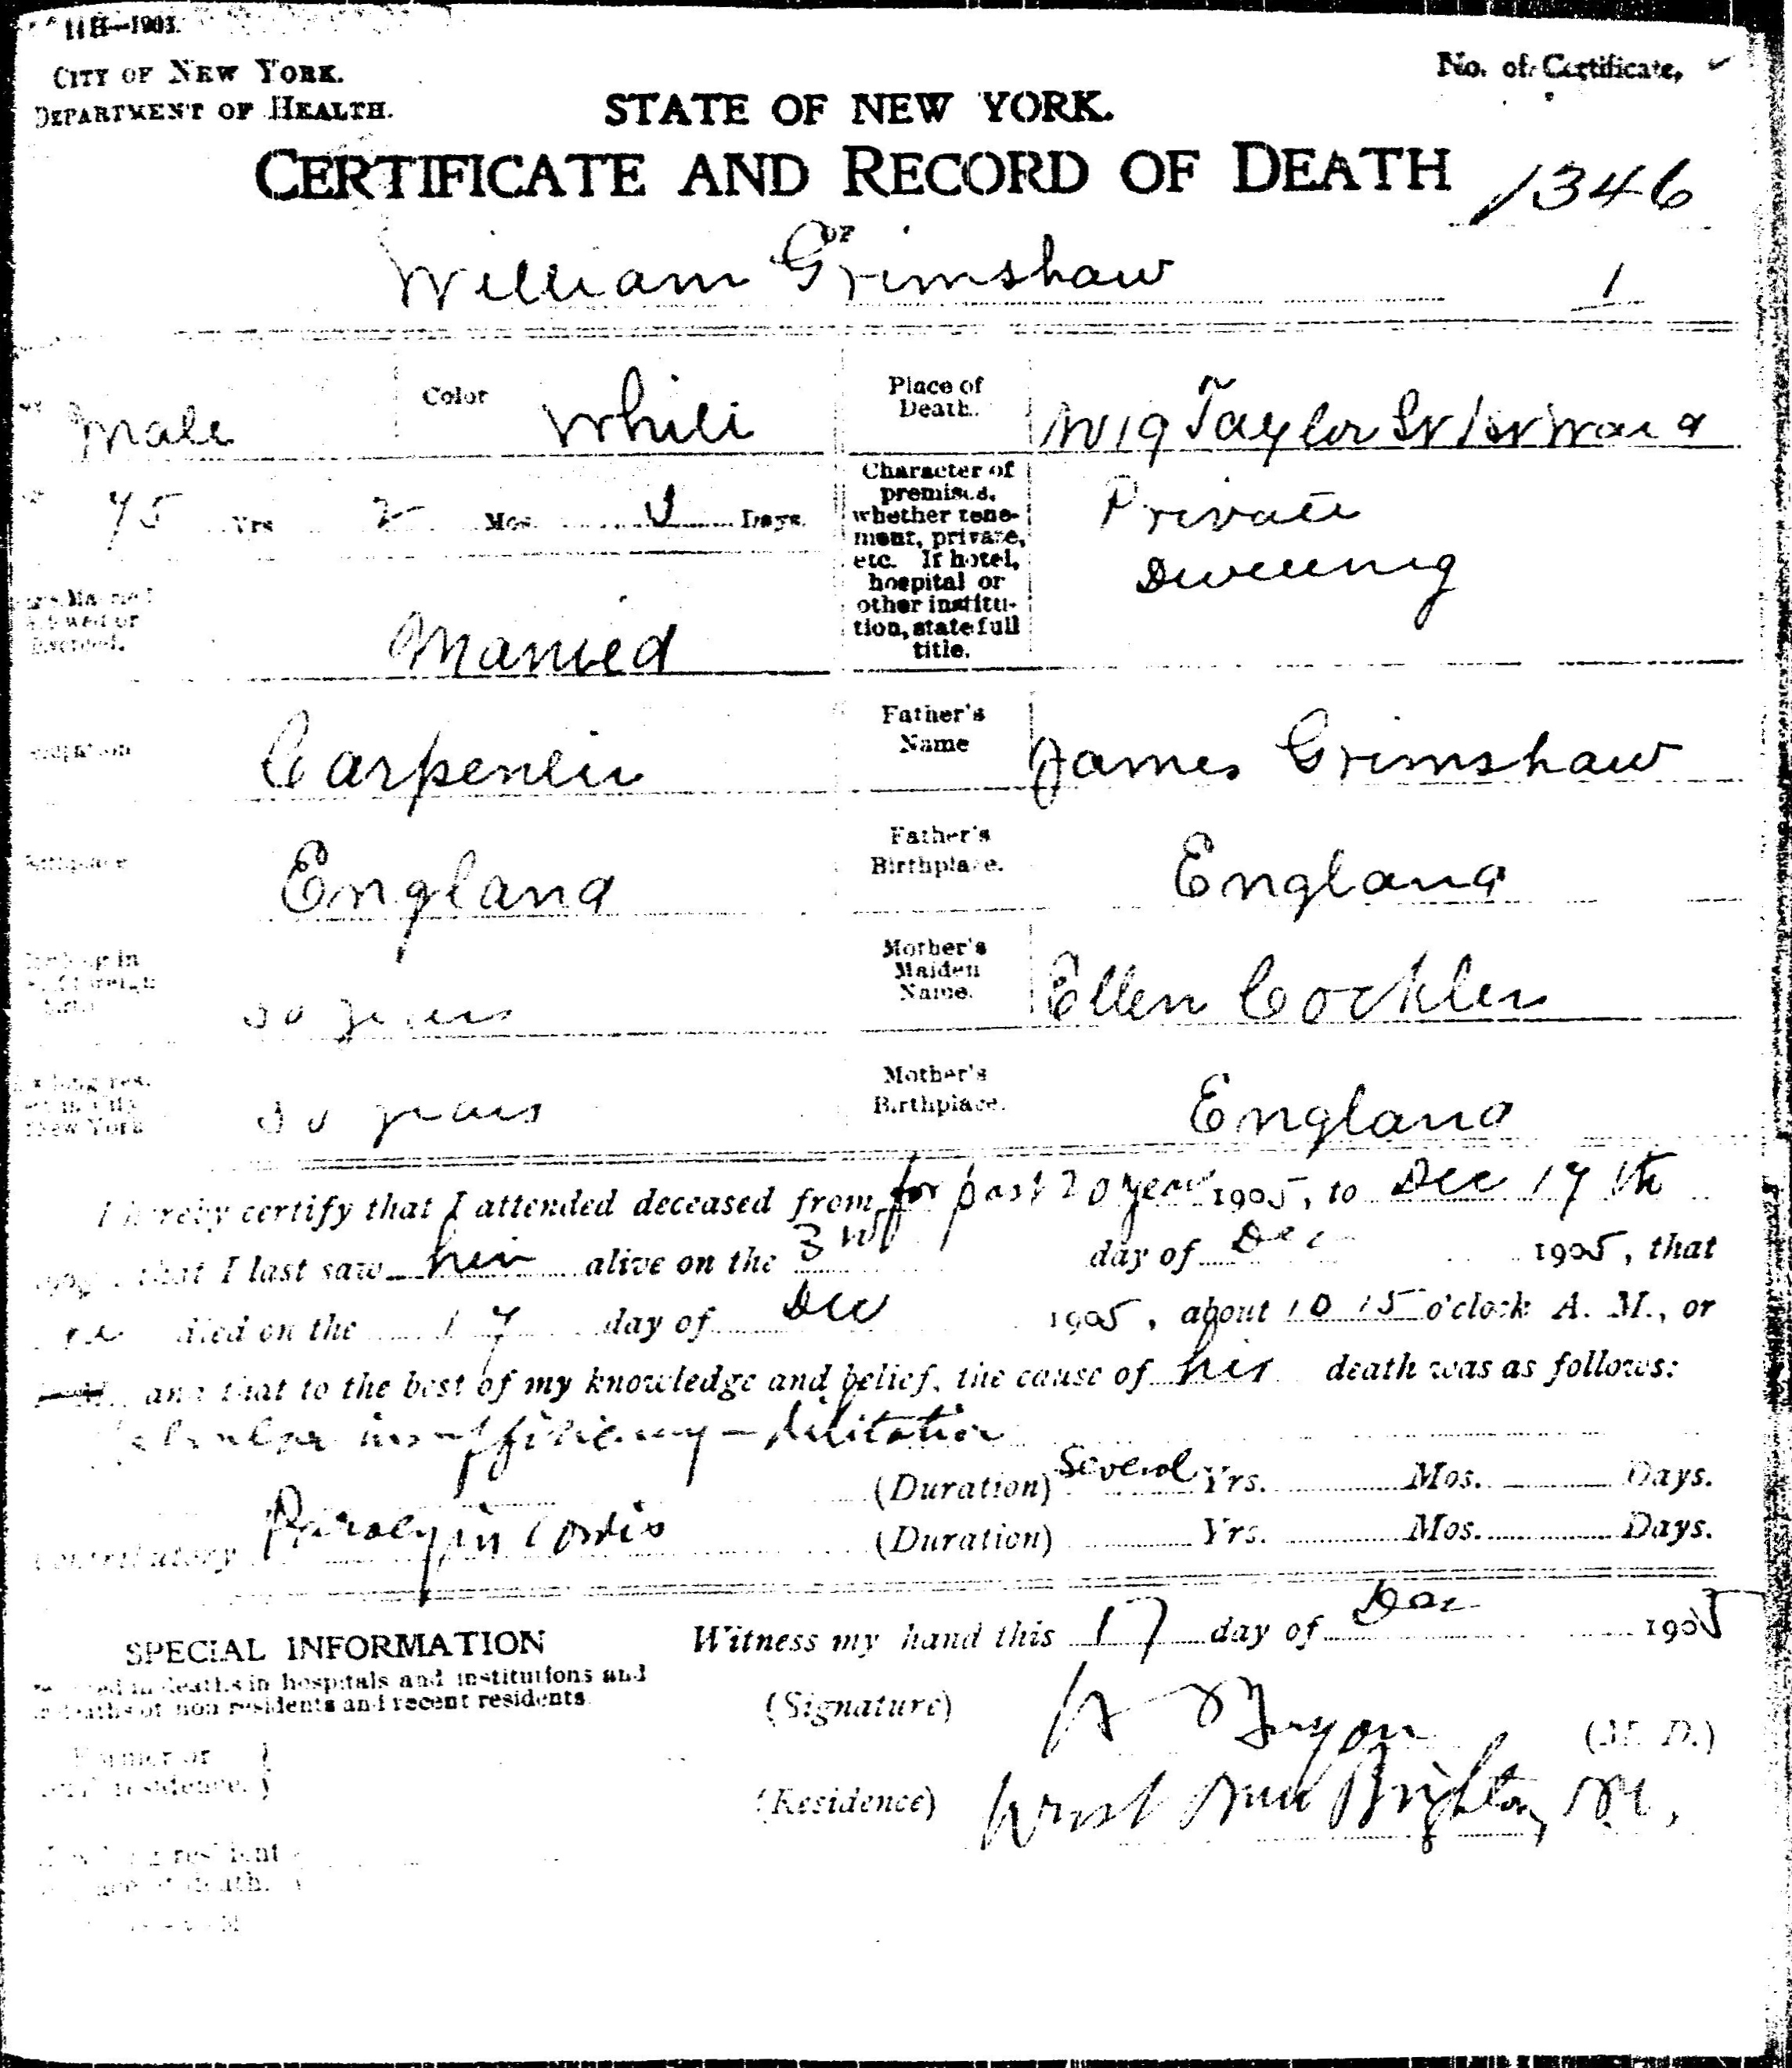 11H—1903.
CITY OF NEW YORK.
DEPARTMENT OF HEALTH.
No. of Certificate,
STATE OF NEW YORK.
CERTIFICATE AND RECORD OF DEATH
1346
OF
William Grimshaw
1
Male
Color
White
Place of Death.
Taylor St 1st Ward
75 Yrs 2 Mos. Days.
Character of premises, whether tenement, private, etc. If hotel, hospital or other institution, state full title.
Private
Dwelling
Married
Carpenter
Father's Name
James Grimshaw
England
Father's Birthplace.
England
years
Mother's Maiden Name.
Ellen
years
Mother's Birthplace.
England
I hereby certify that I attended deceased from for past 20 years 1905, to Dec 17th
that I last saw him alive on the day of Dec 1905, that
died on the 17 day of Dec 1905, about 10 15 o'clock A. M., or
and that to the best of my knowledge and belief, the cause of his death was as follows:
insufficiency — dilitation
(Duration) Several Yrs. Mos. Days.
Contributory Paralysis Cordis (Duration) Yrs. Mos. Days.
SPECIAL INFORMATION
in deaths in hospitals and institutions and
deaths of non residents and recent residents.
Witness my hand this 17 day of Dec 1905
(Signature) (M. D.)
Former or
residence.
(Residence) West New Brighton
resident
death.